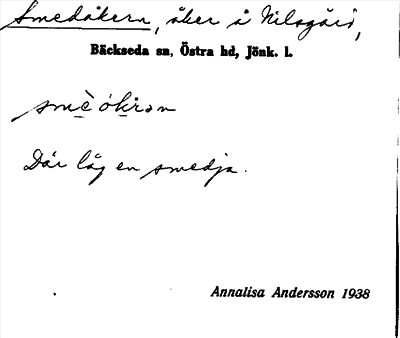 Smedåkern, åker å Nilsgård,
Bäckseda sn, Östra hd, Jönk. l.
smè̱ óḵrən
Där låg en smedja.
Annalisa Andersson 1938